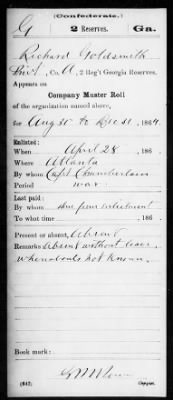 (Confederate.)
G 2 Reserves. Ga.
Richard Goldsmith
Pvt, Co. A, 2 Reg't Georgia Reserves.
Appears on
Company Muster Roll
of the organization named above,
for Aug 31 to Dec 31, 1864.
Enlisted:
When April 28, 186 .
Where Atlanta
By whom Capt Chamberlain
Period war
Last paid:
By whom due from enlistment
To what time , 186 .
Present or absent, Absent
Remarks Absent without leave
whereabouts not known.
Book mark:
(642) Copyist.